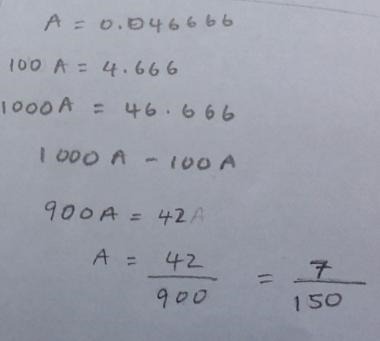 A = 0.046666
100 A = 4.666
1000 A = 46.666
1000 A - 100 A
900A = 42A
A = 42/900 = 7/150